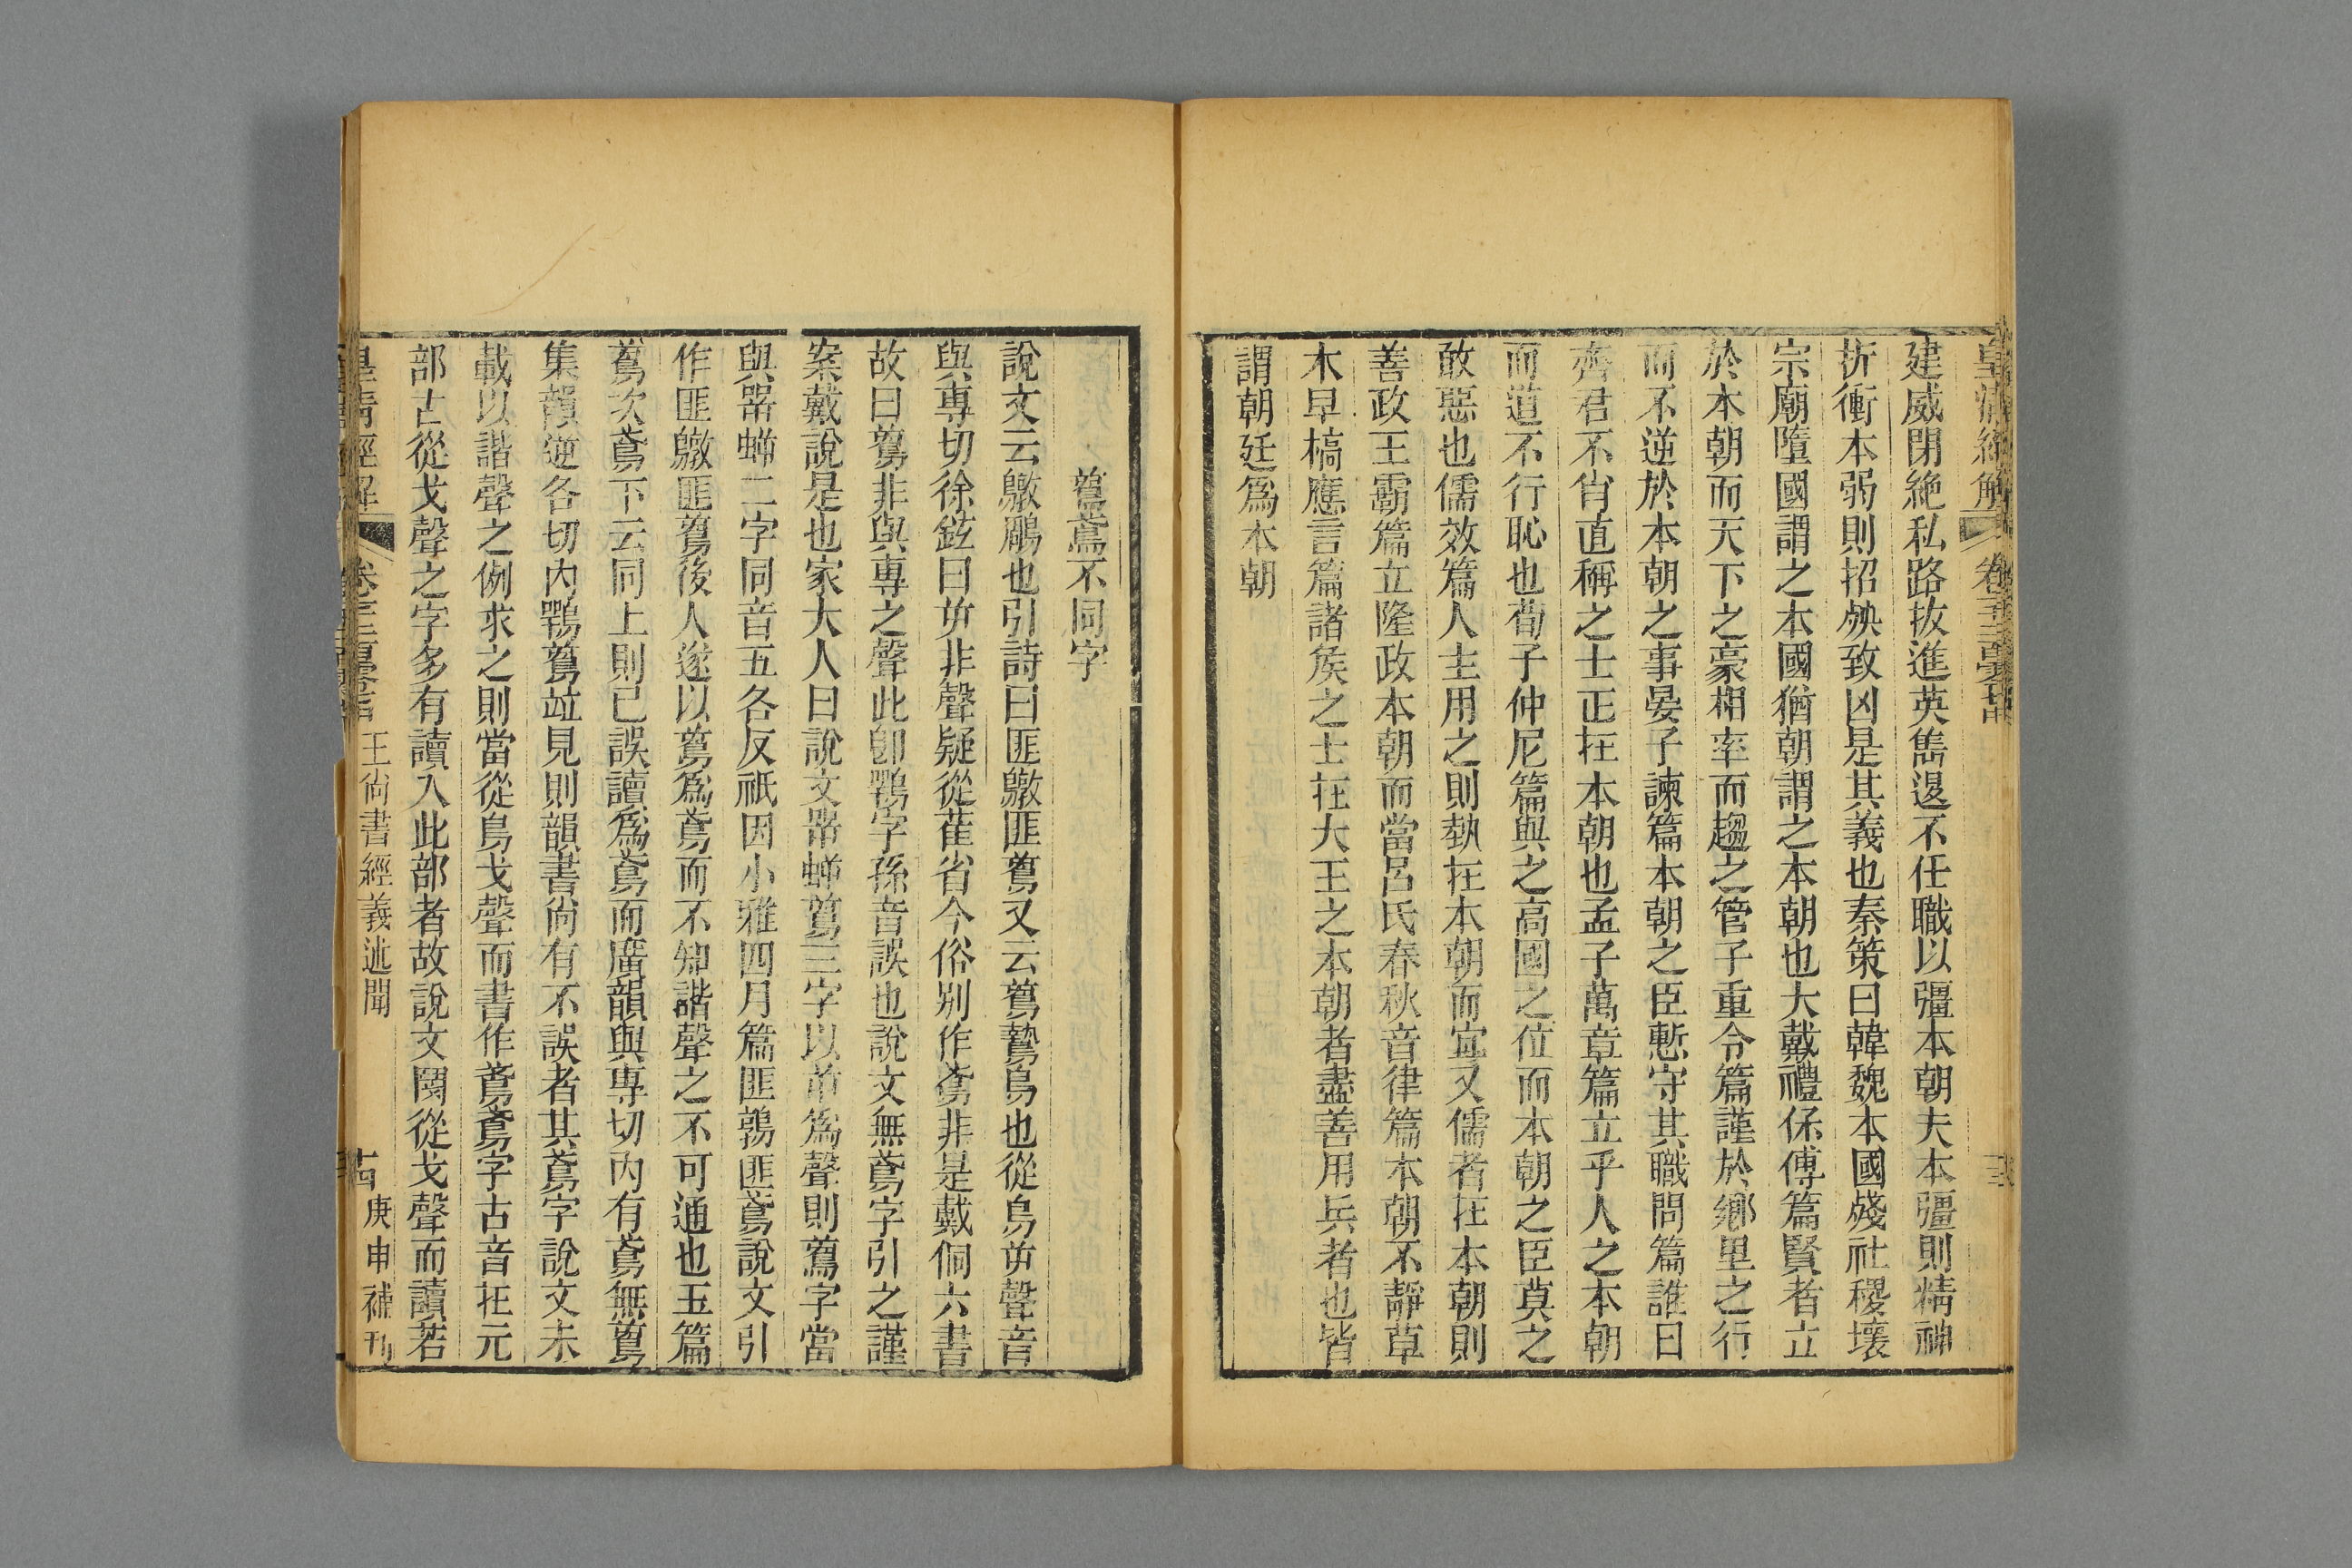 皇清經解
建威閉絶私路拔進英雋退不任職以彊本朝夫本彊則精神
折衝本弱則招殃致凶是其義也秦策曰韓魏本國殘社稷壞
宗廟墮國謂之本國猶朝謂之本朝也大戴禮保傅篇賢者立
於本朝而天下之豪相率而趨之管子重令篇謹於鄉里之行
而不逆於本朝之事晏子諫篇本朝之臣慙守其職問篇誰曰
齊君不肖直稱之士正在本朝也孟子萬章篇立乎人之本朝
而道不行恥也荀子仲尼篇與之高國之位而本朝之臣莫之
敢惡也儒效篇人主用之則埶在本朝而宜又儒者在本朝則
善政王霸篇立隆政本朝而當呂氏春秋音律篇本朝不靜草
木早槁應言篇諸矦之士在大王之本朝者盡善用兵者也皆
謂朝廷爲本朝
鷻鳶不同字
說文云鷻鵰也引詩曰匪鷻匪䳒又云䳒鷙鳥也從鳥屰聲音
與專切徐鉉曰屰非聲疑從萑省今俗别作鳶非是戴侗六書
故曰䳒非與專之聲此卽鶚字孫音誤也說文無鳶字引之謹
案戴說是也家大人曰說文咢蝉䳒三字以屰爲聲則䳒字當
與咢二字同音五各反祇因小雅四月篇匪鶉匪鳶說文引
作匪鷻匪䳒後人遂以䳒爲鳶而不知諧聲之不可通也玉篇
䳒次鳶下云同上則已誤讀爲鳶而廣韻與專切內有鳶無䳒
集韻逆各切內鶚䳒竝見則韻書尚有不誤者其鳶字說文未
載以諧聲之例求之則當從鳥戈聲而書作鳶鳶字古音在元
部古從戈聲之字多有讀入此部者故說文閔從戈聲而讀若
皇清經解
王尚書經義述聞
庚申補刊